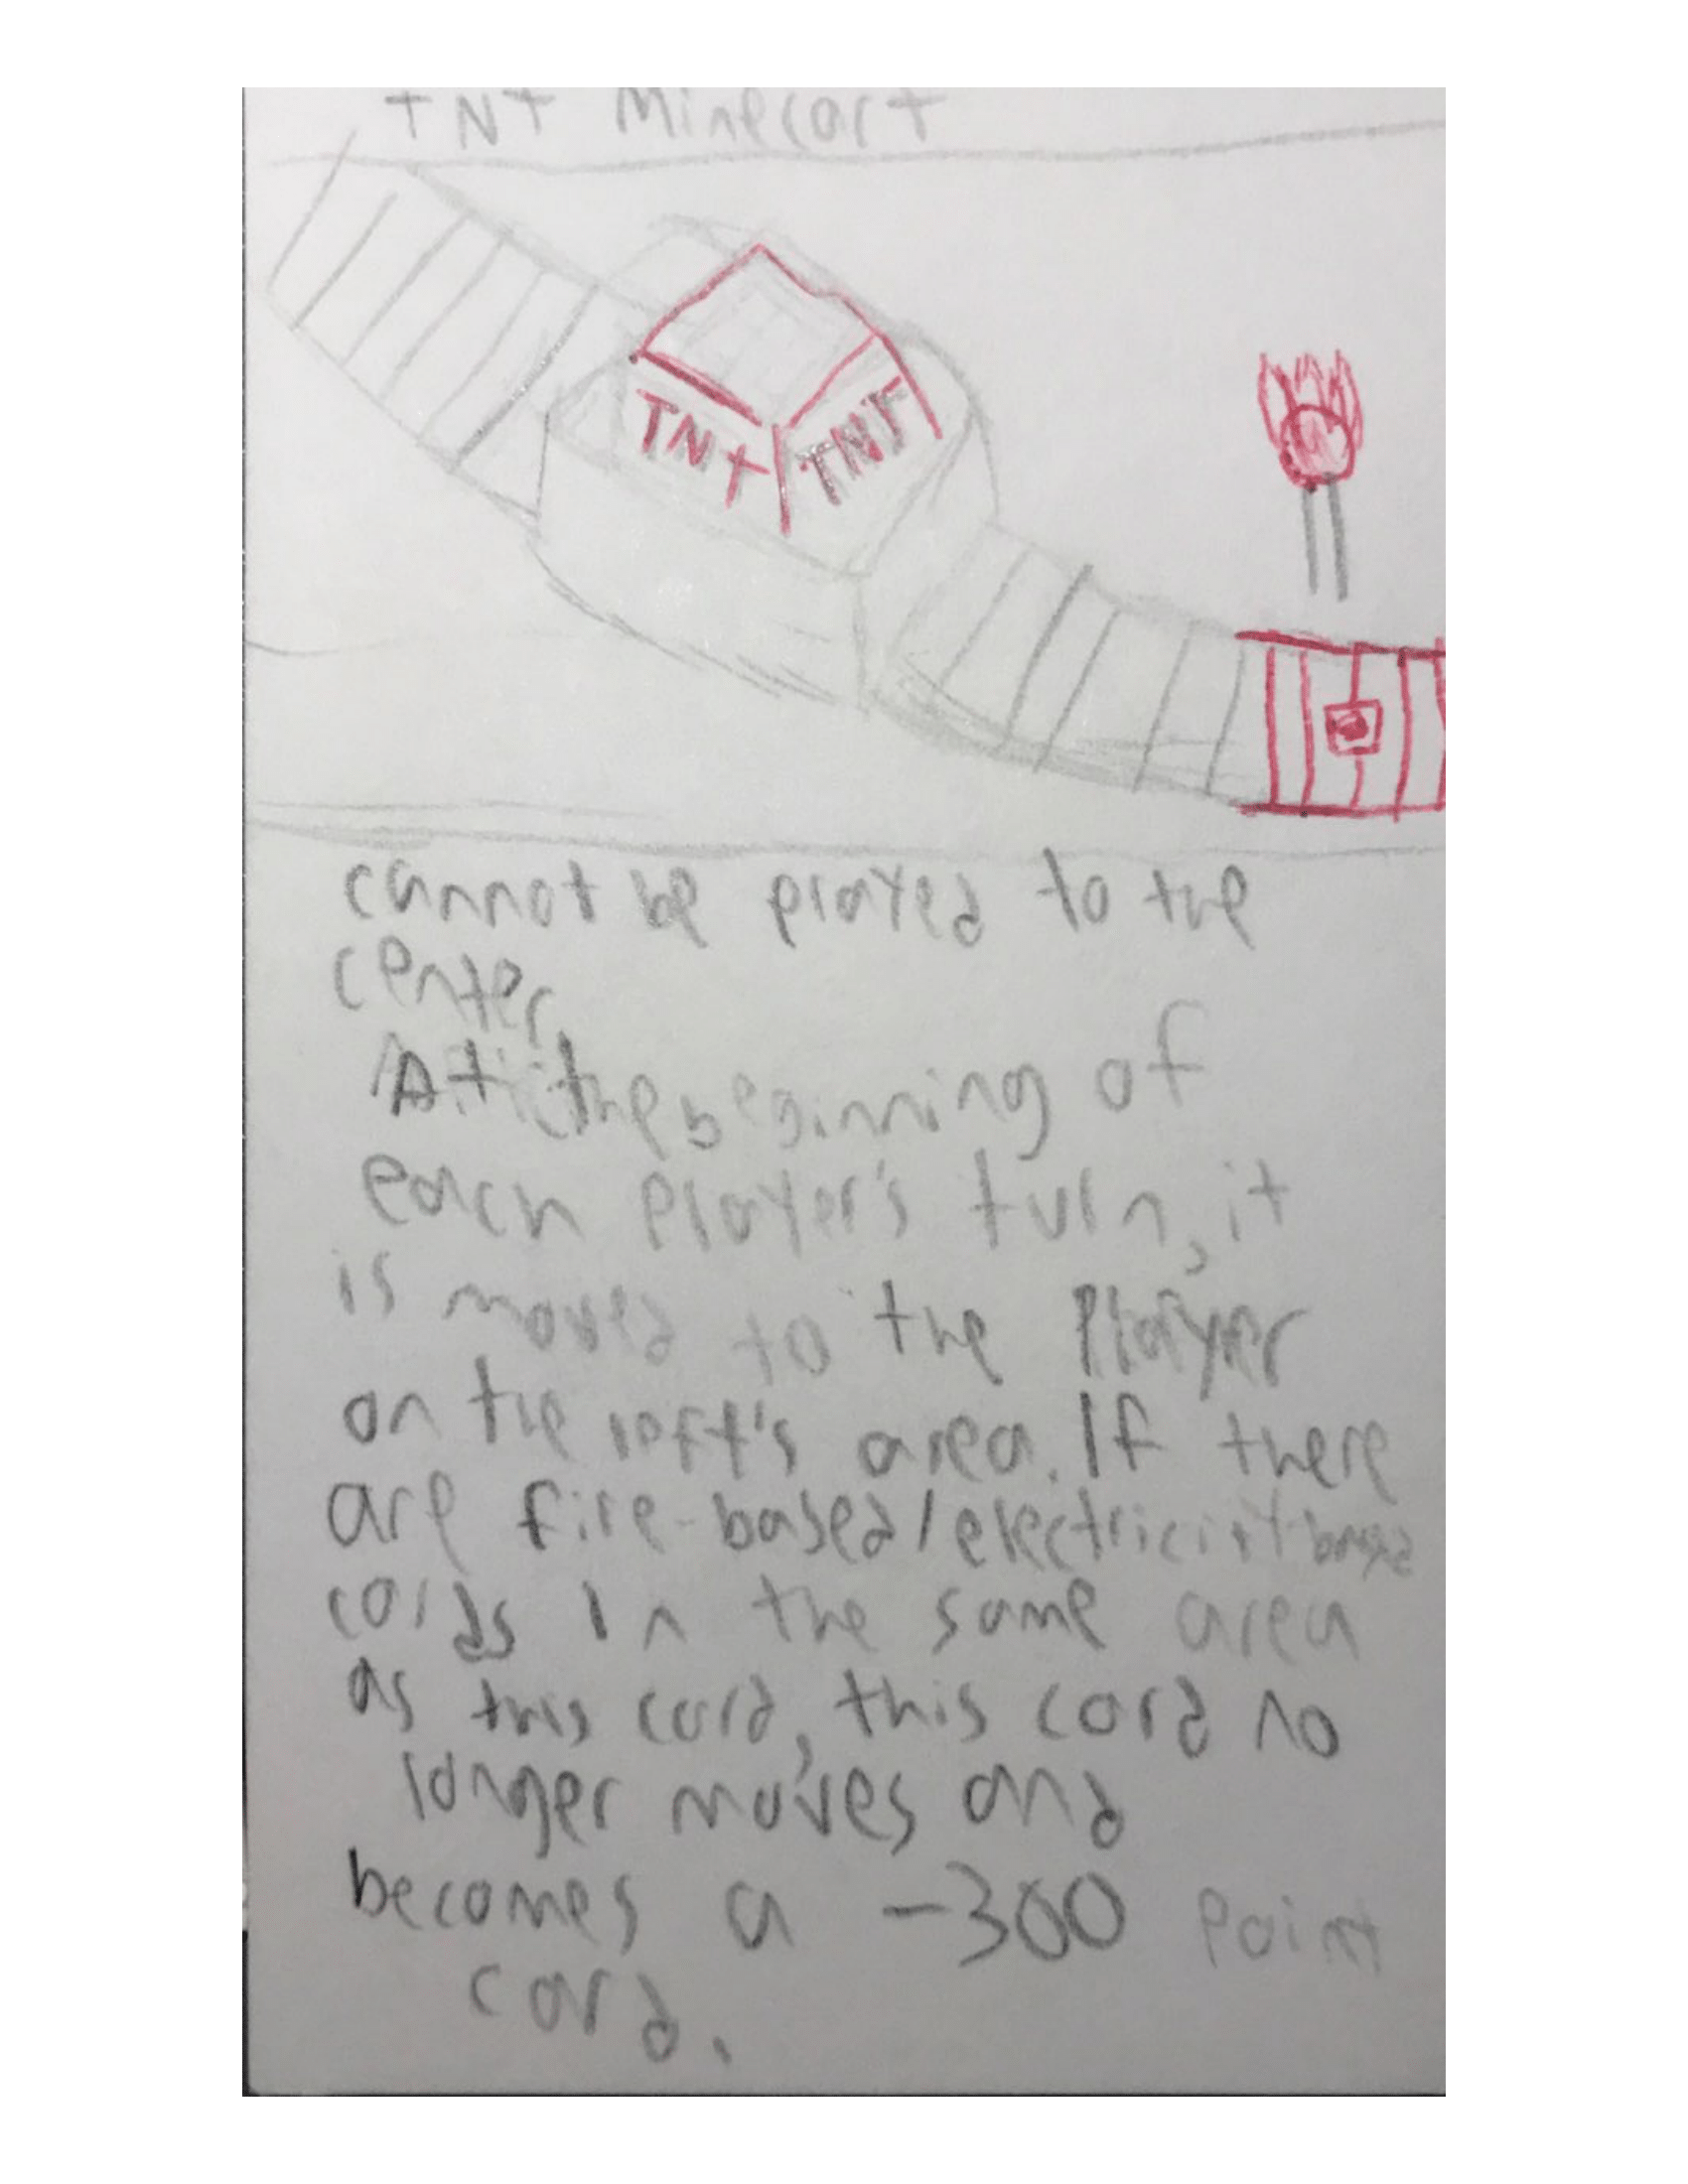 TNT Minecart
TNT TNT
cannot be played to the
center.
At the beginning of
each player's turn, it
is moved to the player
on the left's area. If there
are fire-based/electricity-based
cards in the same area
as this card, this card no
longer moves and
becomes a -300 point
card.